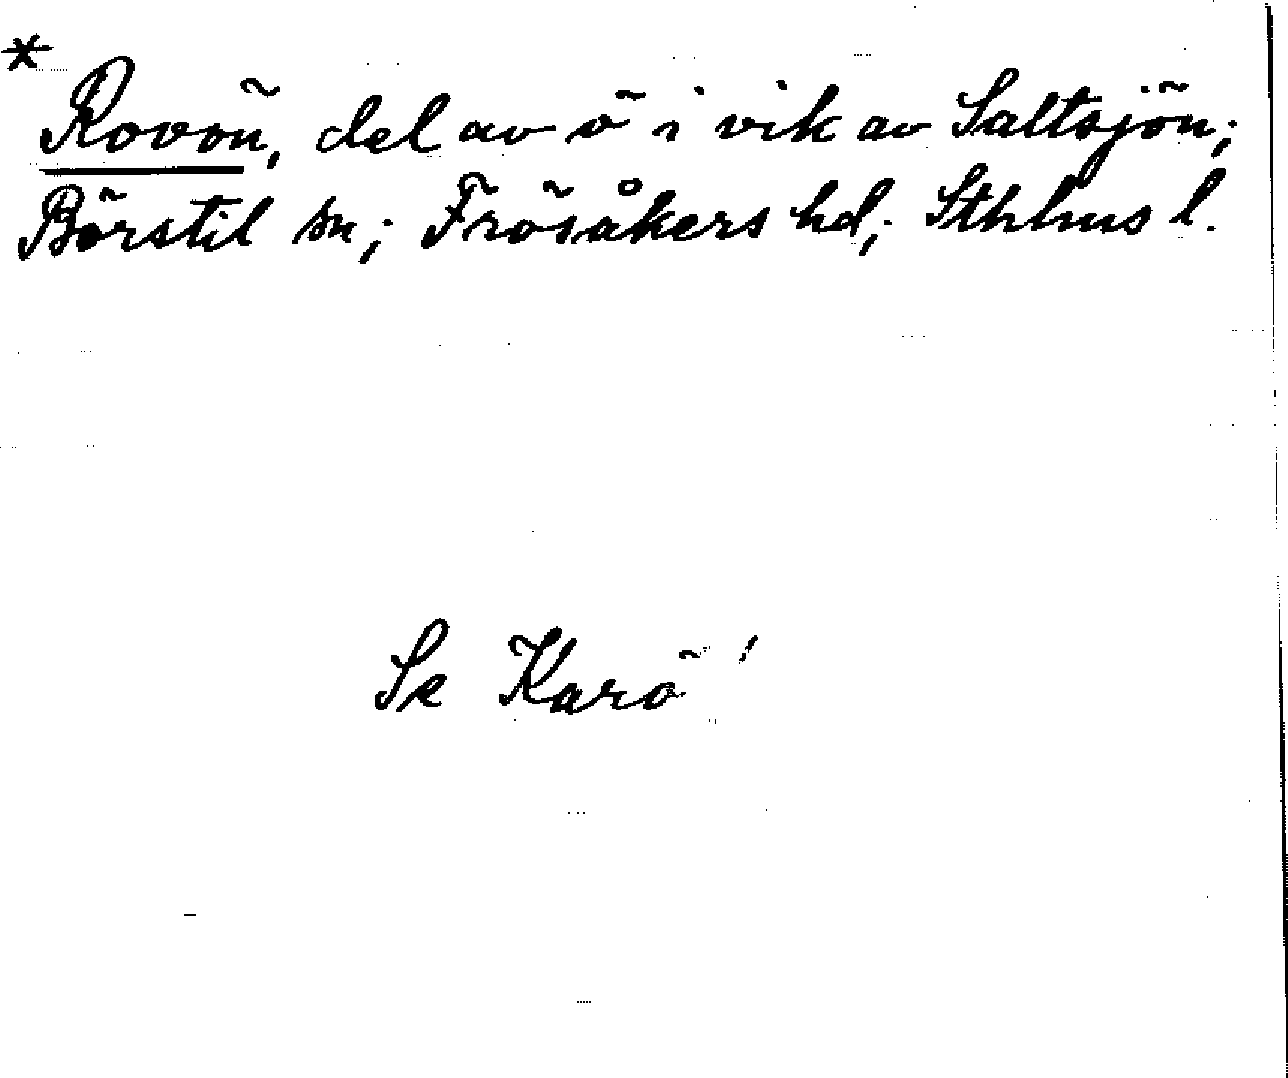 *
Rovön, del av ö i vik av Saltsjön;
Börstil sn; Frösåkers hd; Sthlms l.
Se Karö!